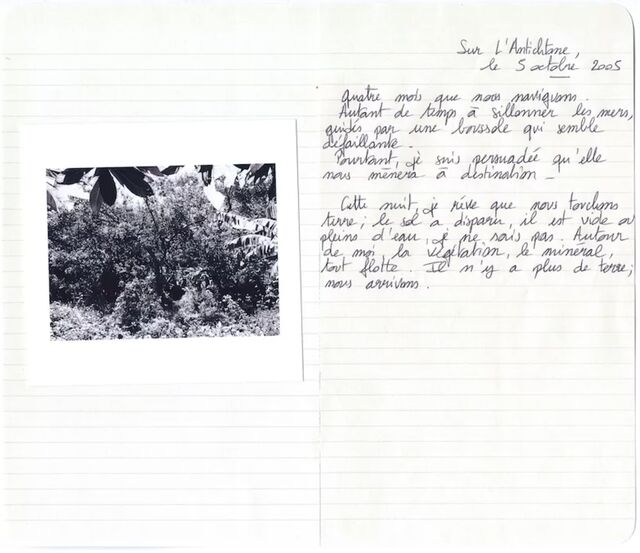 Sur L'Antichtone,
le 5 octobre 2005
Quatre mois que nous naviguons.
Autant de temps à sillonner les mers,
guidés par une boussole qui semble
défaillante.
Pourtant, je suis persuadée qu'elle
nous mènera à destination -
Cette nuit, je rêve que nous touchons
terre ; le sol a disparu, il est vide ou
pleins d'eau, je ne sais pas. Autour
de moi la végétation, le minéral,
tout flotte. Il n'y a plus de terre ;
nous arrivons.